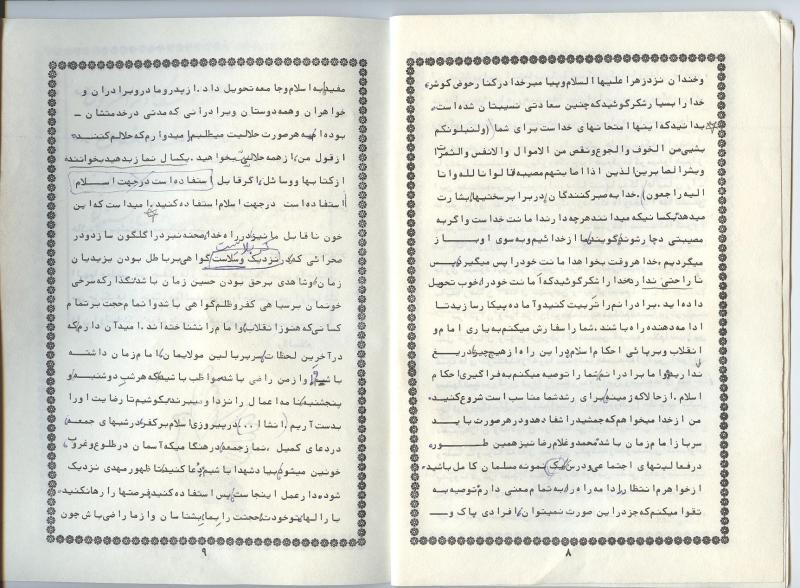 وخندان نزدزهرا علیها السلام وپیا میرخدا درکنا رحوض کوثر،
خدا را بسیا رشکرگوئیدکه چنین سعا دتی نصیبتا ن شده است.
بدا نیدکه اینها ا متحا نهای خداست برای شما (ولنبلونکم
بشیی من الخوف والجوع ونقص من الاموال والانفس والثمرات
وبشرا لصا برین الذین اذا اصا بتهم مصیبه قا لوا نا لله وا نا
الیه را جعون). خدا به صبرکنندگا ن دربرا برسختیها بشا رت
میدهد. کسا نیکه میدا نندهرچه دا رندا ما نت خداست واگربه
مصیبتی دچا رشوند گویند ما ا زخدا ئیم وبه سوی ا وبــا ز
میگردیم، خدا هروقت بخوا هدا ما نت خودرا پس میگیرد، پس
نا را حتی ندا رد. خدا را شکرگوئیدکه اما نت خودرا خوب تحویل
دا ده اید. برا درا نم را تربیت کنیدوآ ما ده پیکا رسا زیدتا
ادا مه دهنده را ه با شند. شما را سفا رش میکنم به یا ری ا ما م و
ا نقلاب وبرپا ئی احکا م اسلام درا ین را ه ا زهیچ چیزدریــغ
ندا رید. وا ما برا درا نم شما را توصیه میکنم به فرا گیری احکا م
اسلام. ا زحا لا که زمینه برای رشدشما منا سب است شروع کنیــد.
من ا زخدا میخوا هم که جمشیدرا شفا دهدودرهرصورت با یــد
سربا زا ما م زما ن با شد، محمدوغلام رضا نیزهمین طــــور.
درفعا لیتهای اجتما عی ودرس یک نمونه مسلما ن کا مل با شید.
ا زخوا هرم ا نتظا را دا مه را ه را به تما م معنی دا رم توصیه به
تقوا میکنم که جزدرا ین صورت نمیتوا ن افرا دی پا ک وــ
۸
مفیدبه اسلام وجا معه تحویل داد. ا زپدروما دروبرا درا ن و
خوا هرا ن وهمه دوستا ن وبرا درا نی که مدتی درخدمتشا ن ــ
بوده ام به هرصورت حلالیت میطلبم امیدوا رم که حلالم کننــد.
ا زقول من ا زهمه حلالیت بخوا هید. یکسا ل نما زبدهیدبخوانند.
ا زکتا بها ووسا ئل اگرقا بل استفا ده است درجهت اســلام
استفا ده است درجهت اسلام استفا ده کنید. ا میدا ست که این
خون نا قا بل ما نیزدررا ه خدا صحنه نبردرا گلگون سا زدودر
کربلاست
صحرا ئی که نزدیک وسلاست گوا هی برباطل بودن یزیدیا ن
زما ن وشا هدی برحق بودن حسین زما ن با شد، تذا رکه سرخی
خونما ن برسیا هی کفروظلم گوا هی با شدوا تما م حجت برتما م
کسا نی که هنوزا نقلاب وا ما م را نشنا خته ا ند. ا میدآن دا رم که
درآخرین لحظا ت بربا لین مولایما ن اما م زما ن داشتــه
با شیم وا زمن را ضی با شد، موا ظب با شیم که هرشب دوشنبــه و
پنجشنبه نا مه اعما ل را نزدا ومیبرند، بکوشیم تا رضا یت ا ورا
بدست آریم. انشا ا... درپیروزی اسلام برکفر، درشبهای جمعــه
دردعای کمیل، نما زجمعه درهنگا میکه آسما ن درطلوع وغروب
خونین میشود، بیا دشهدا با شیم، دعا کنیدتا ظهورمهدی نزدیک
شودودا رعمل ا ینجا ست. پس استفا ده کنید، فرصتها را رها نکنید.
با را لها توخودت حجتت را بما بشنا سا ن وا زما را ضی با ش چون
۹